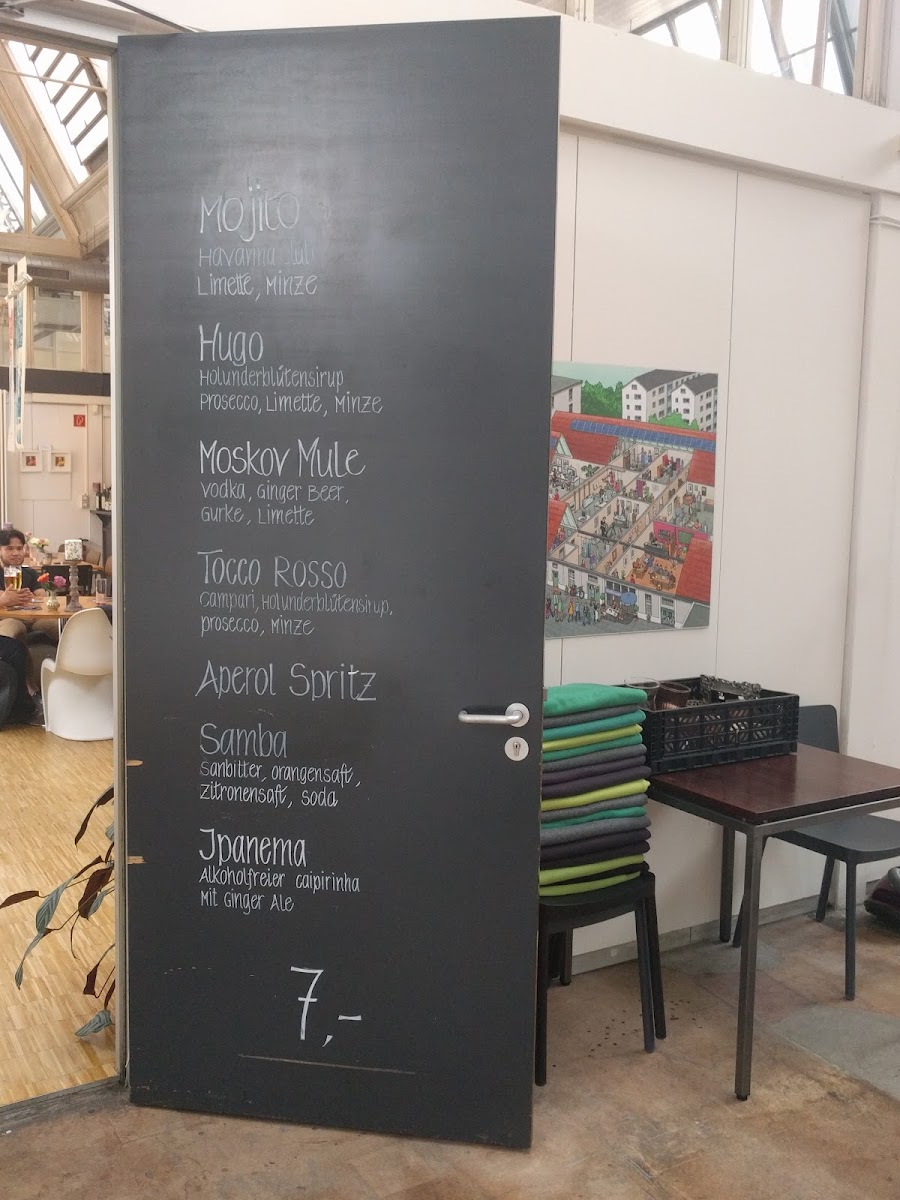 Mojito
Havanna Club
Limette, Minze
Hugo
Holunderblütensirup
Prosecco, Limette, Minze
Moskov Mule
Vodka, Ginger Beer,
Gurke, Limette
Tocco Rosso
Campari, Holunderblütensirup,
Prosecco, Minze
Aperol Spritz
Samba
Sanbitter, orangensaft,
Zitronensaft, soda
Jpanema
Alkoholfreier caipirinha
Mit Ginger Ale
7,-